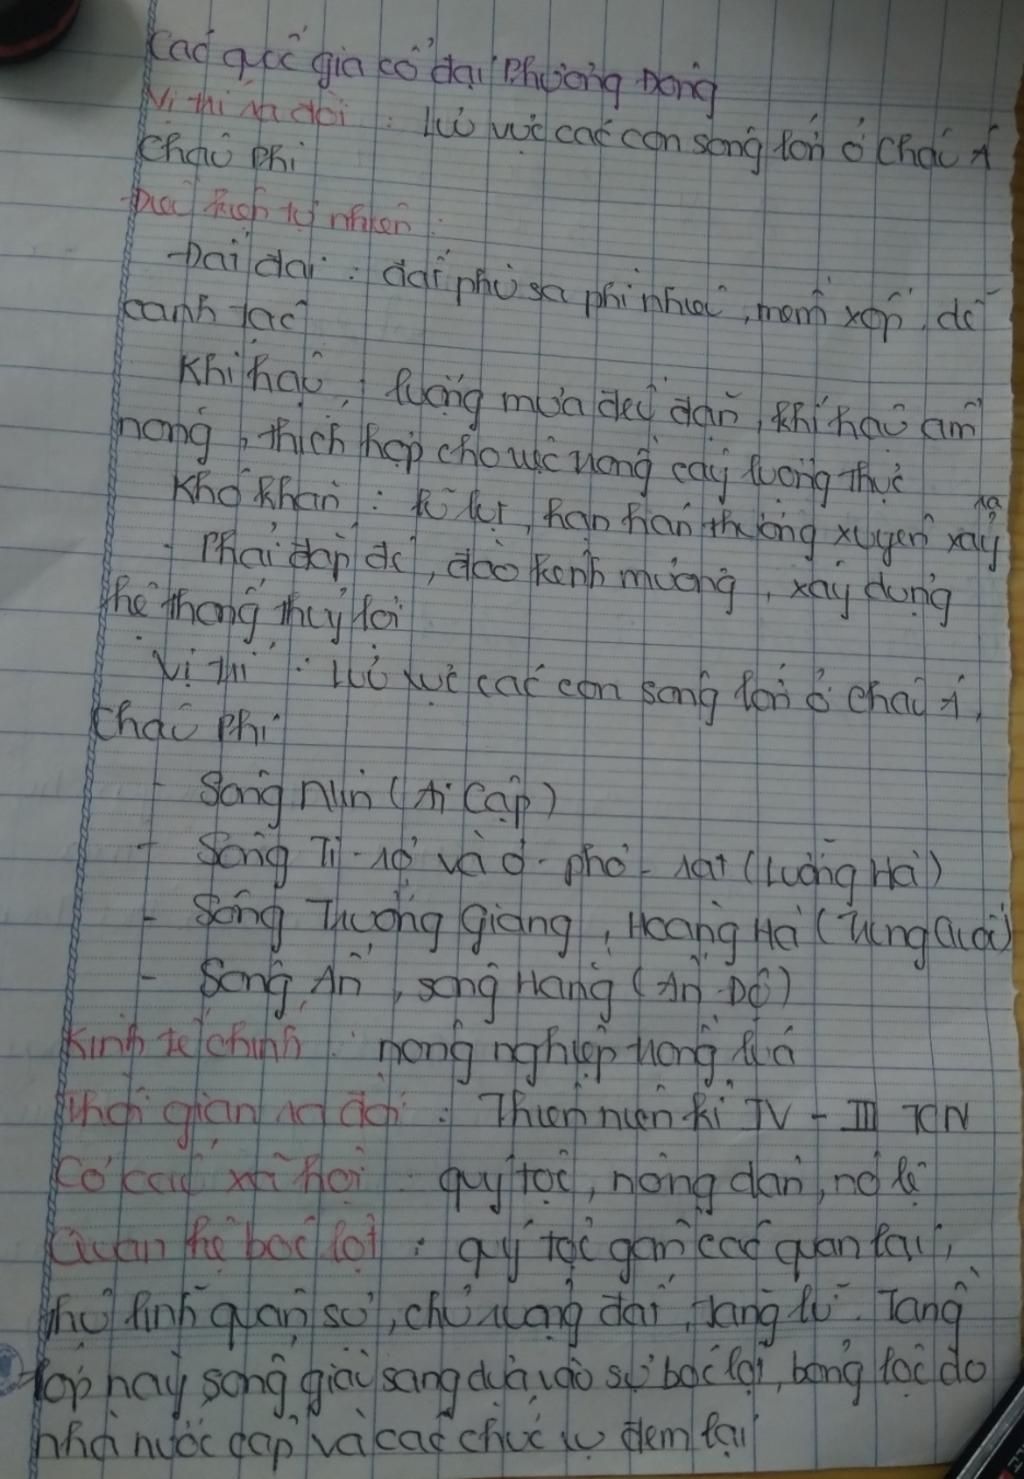 Các quốc gia cổ đại Phương Đông
Vị trí ra đời : Lưu vực các con sông lớn ở Châu Á
Châu Phi
Điều kiện tự nhiên :
- Đất đai : đất phù sa phì nhiêu, mềm xốp, dễ
canh tác
Khí hậu, lượng mưa đều đặn, khí hậu ấm
nóng, thích hợp cho việc trồng cây lương thực
Khó khăn : lũ lụt, hạn hán thường xuyên xảy ra
- Phải đắp đê, đào kênh mương, xây dựng
hệ thống thủy lợi
Vị trí : Lưu vực các con sông lớn ở châu Á,
Châu Phi
- Sông Nin (Ai Cập)
- Sông Ti-rơ và ơ-phơ-rát (Lưỡng Hà)
- Sông Trường Giang, Hoàng Hà (Trung Quốc)
- Sông Ấn, sông Hằng (Ấn Độ)
Kinh tế chính : nông nghiệp trồng lúa
Thời gian ra đời : Thiên niên kỉ IV - III TCN
Cơ cấu xã hội : quý tộc, nông dân, nô lệ
Quan hệ bóc lột : quý tộc gồm các quan lại,
thủ lĩnh quân sự, chủ ruộng đất, tăng lữ. Tầng
lớp này sống giàu sang dựa vào sự bóc lột, bổng lộc do
nhà nước cấp và các chức vụ đem lại